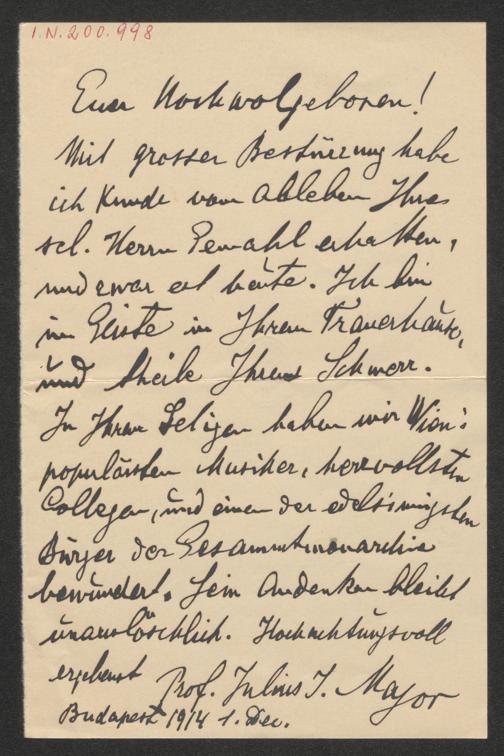 I.N. 200.998
Euer Hochwolgeboren!
Mit grosser Bestürzung habe
ich Kunde vom Ableben Ihres
sel. Herrn Gemahl erhalten,
und zwar erst heute. Ich bin
im Geiste in Ihrem Trauerhause,
und theile Ihren Schmerz.
In Ihrem Seligen haben wir Wien's
populärsten Musiker, herzvollsten
Collegen, und einen der edelsinnigsten
Bürger der Gesammtmonarchie
bewundert. Sein Andenken bleibt
unauslöschlich. Hochachtungsvoll
ergebenst Prof. Julius J. Major
Budapest 1914 1. Dec.